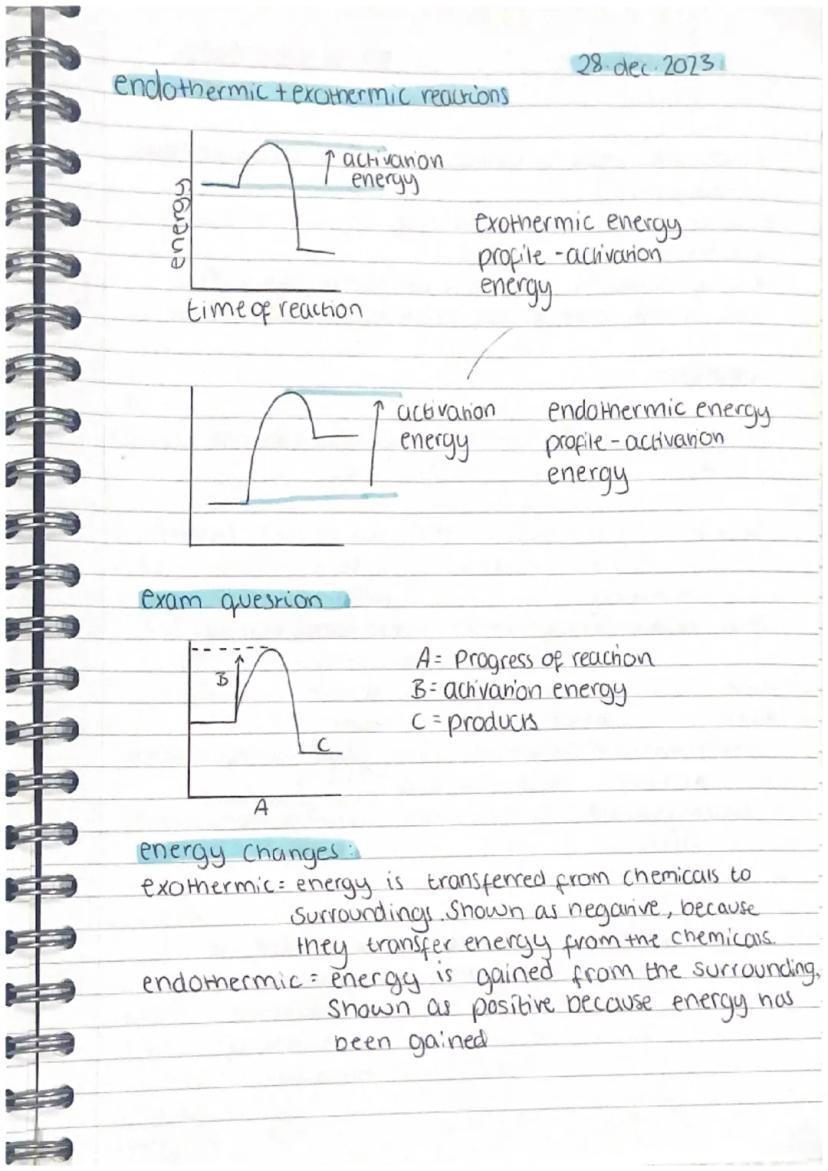 28.dec.2023
endothermic + exothermic reactions
↑ activation
energy
energy
exothermic energy
profile - activation
energy
time of reaction
activation
energy
endothermic energy
profile - activation
energy
exam question
B
C
A
A = Progress of reaction
B = activation energy
C = products
energy changes:
exothermic = energy is transferred from chemicals to
surroundings. Shown as negative, because
they transfer energy from the chemicals.
endothermic = energy is gained from the surrounding,
Shown as positive because energy has
been gained